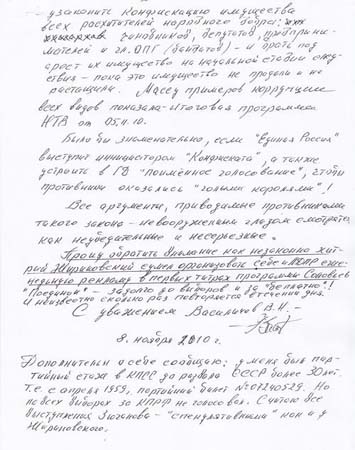 узаконить конфискацию имущества
всех расхитителей народного добра:
чиновников, депутатов, предприни-
мателей и гл. ОПГ (бандитов) - и брать под
арест их имущество на начальной стадии след-
ствия - пока это имущество не продали и не
растащили. Массу примеров коррупции
всех видов показала итоговая программа
НТВ от 05.11.10.
Было бы знаменательно, если "Единая Россия"
выступит инициатором "Конфиската", а также
устроить в ГД "поимённое голосование", чтобы
противники оказались "голыми королями"!
Все аргументы, приводимые противниками
такого закона - невооружённым глазом смотрятся,
как неубедительные и несерьёзные.
Прошу обратить внимание как незаконно хит-
рый Жириновский сумел организовать себе и ЛДПР еже-
недельную рекламу в первых титрах программы Соловьёва
"Поединок" - задолго до выборов и за "бесплатно"!
И неизвестно сколько раз повторяется в течении дня.
С уважением Васильчов В.Н. -
8. ноября 2010 г.
Дополнительно о себе сообщаю: у меня был пар-
тийный стаж в КПСС до развала СССР более 30 лет.
Т.е. с апреля 1959, партийный билет № 07290529. Но
на всех выборах за КПРФ не голосовал. Считаю все
выступления Зюганова - "спекулятивными" как и у
Жириновского.